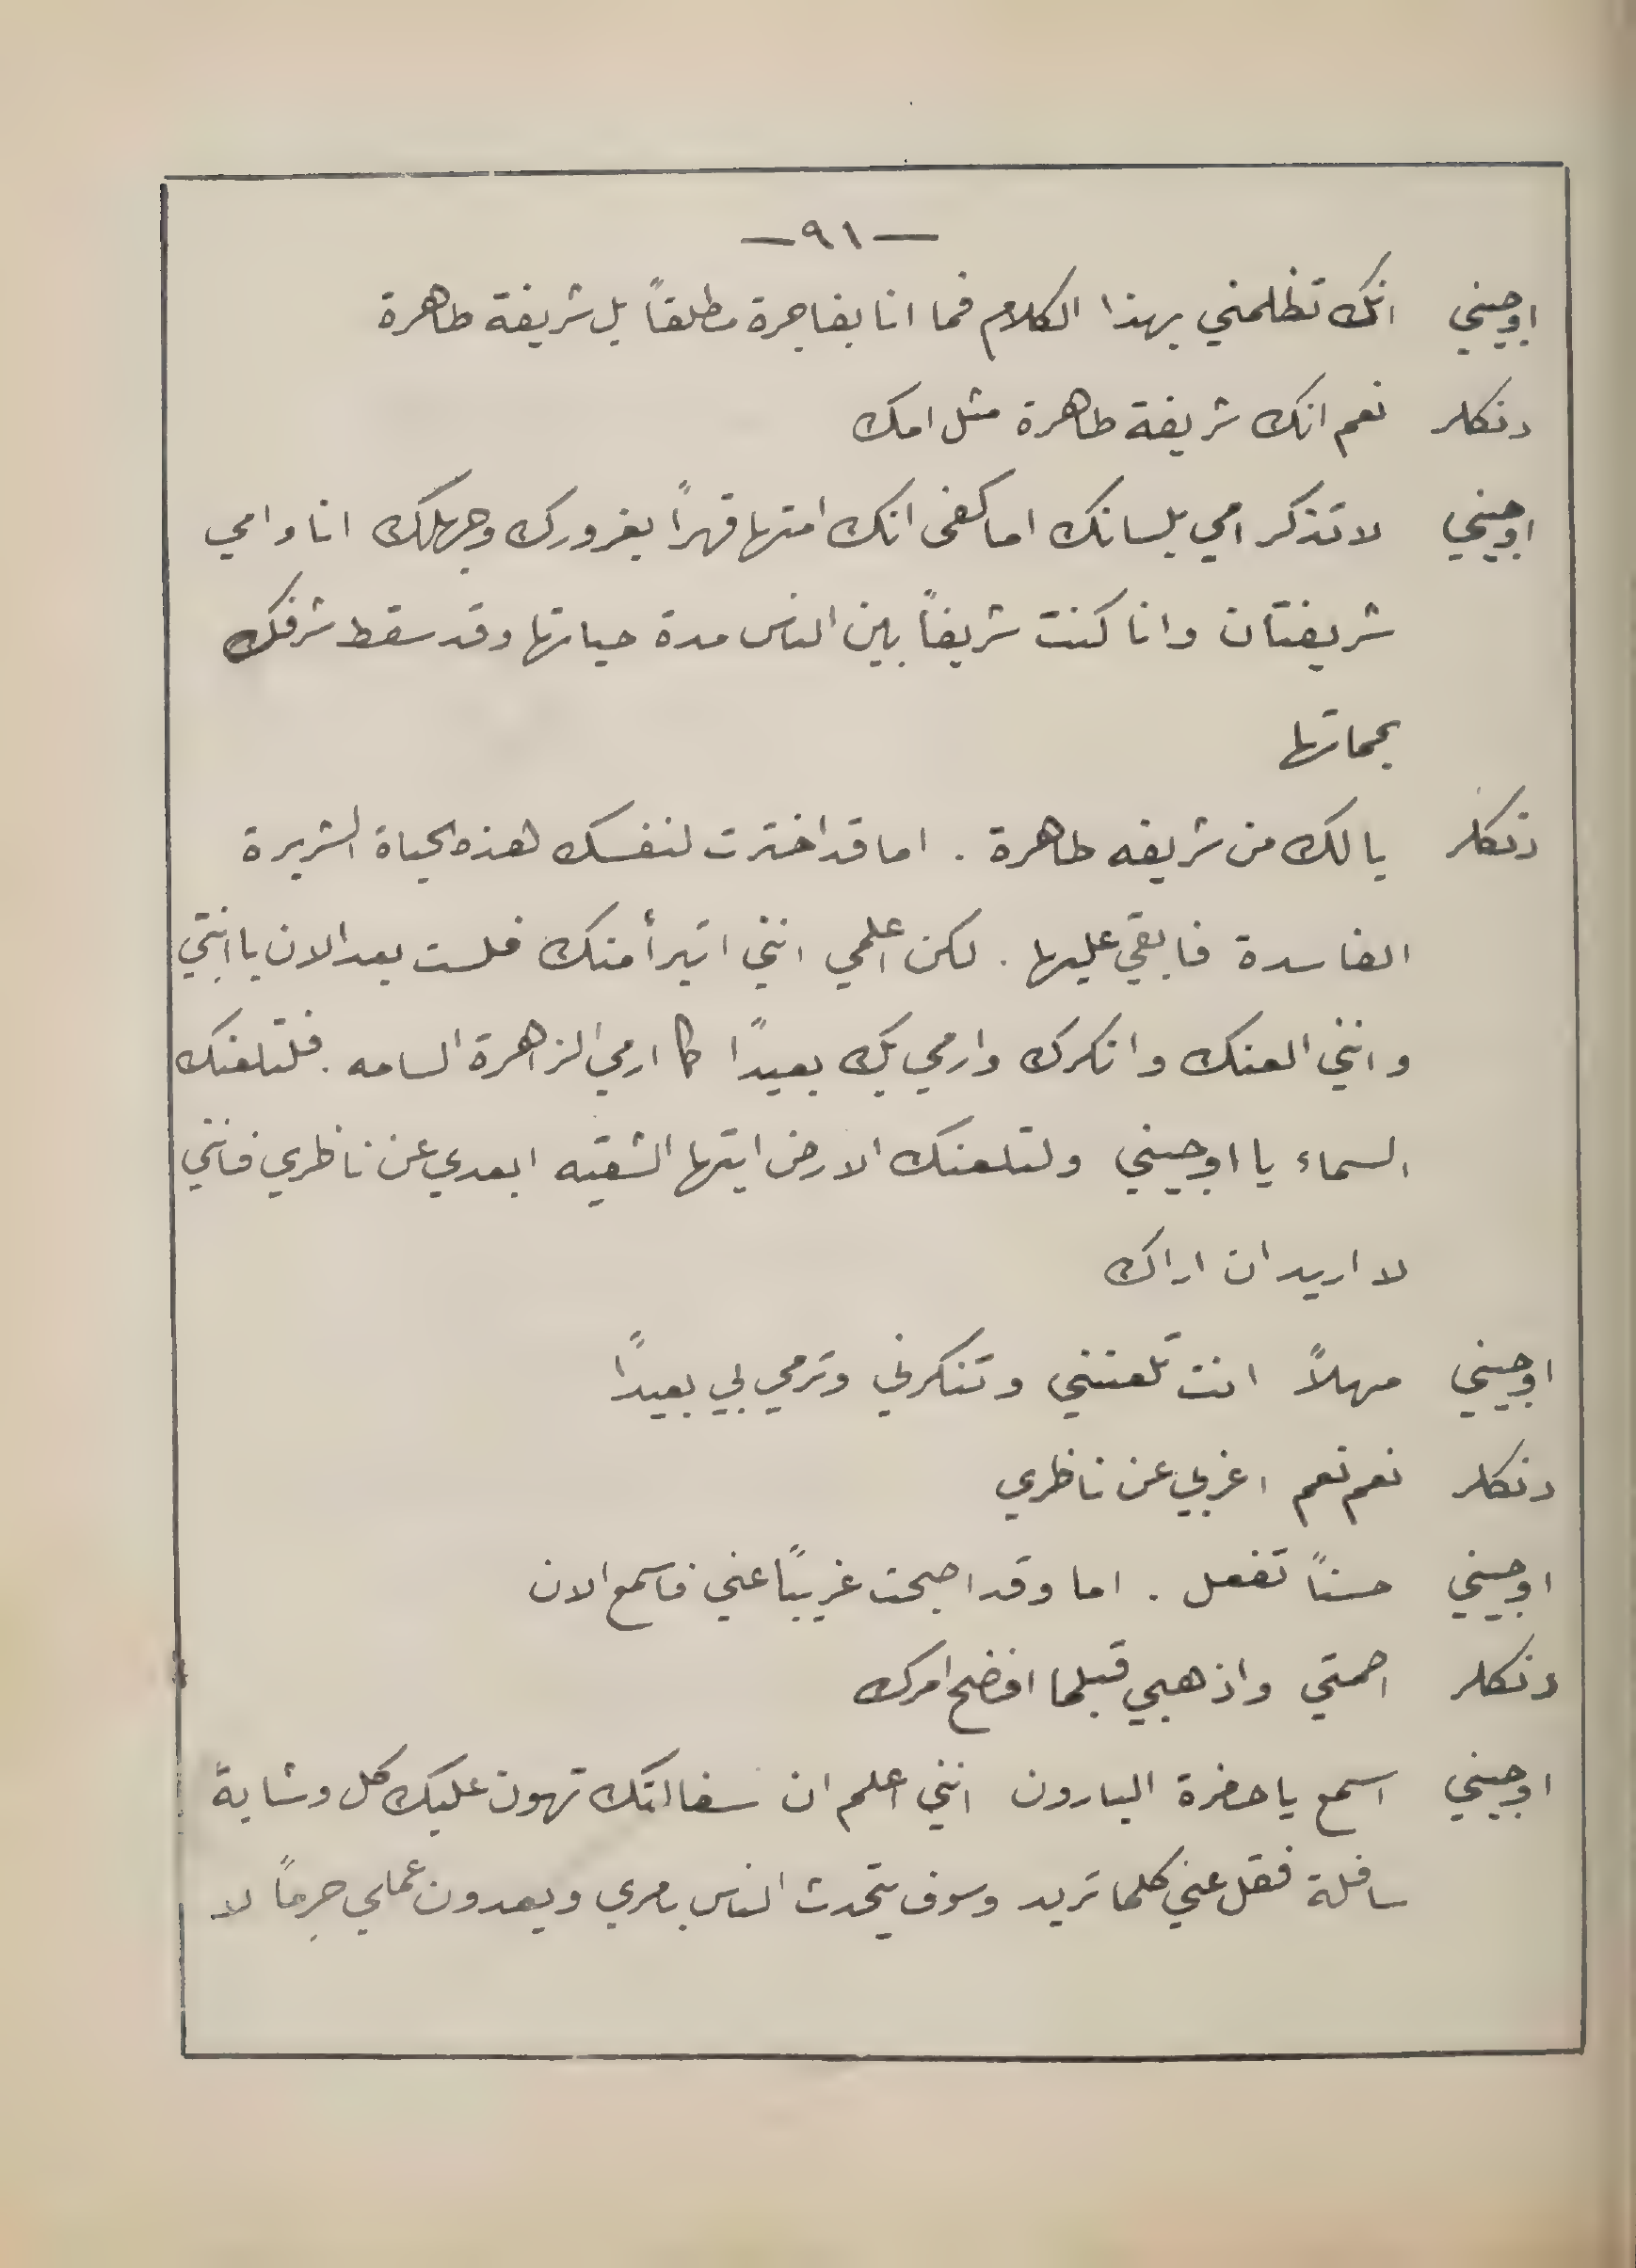 —٩١—
اوجيني انك تظلمني بهذا الكلام فما انا بفاجرة مطلقاً بل شريفة طاهرة
دنكلر نعم انك شريفة طاهرة مثل امك
اوجيني لا تذكر امي بلسانك اما كفى انك امتها قهراً بغرورك وجهلك انا وامي
شريفتان وانا كنت شريفاً بين الناس مدة حياتها وقد سقط شرفك
بمماتها
دنكلر يالك من شريفه طاهرة . اما قد اخترت لنفسك هذه الحياة الشريرة
الفاسدة فابقي عليها . لكن اعلمي انني اتبرأ منك فلست بعد الان يا ابنتي
وانني العنك وانكرك وارمي بك بعيداً كما ارمي الزاهرة السامه . فلتلعنك
السماء يا اوجيني ولتلعنك الارض ايتها الشقيه ابعدي عن ناظري فانني
لا اريد ان اراك
اوجيني مهلاً انت تلعنني وتنكرني وترمي بي بعيداً
دنكلر نعم نعم اغربي عن ناظري
اوجيني حسناً تفعل . اما وقد اصبحت غريباً عني فاسمع الان
دنكلر اصمتي واذهبي قبلما افضح امرك
اوجيني اسمع يا حضرة البارون انني اعلم ان سفالتك تهون عليك كل وشاية
سافلة فقل عني كلما تريد وسوف يتحدث الناس بامري ويعدون عملي جرماً لا